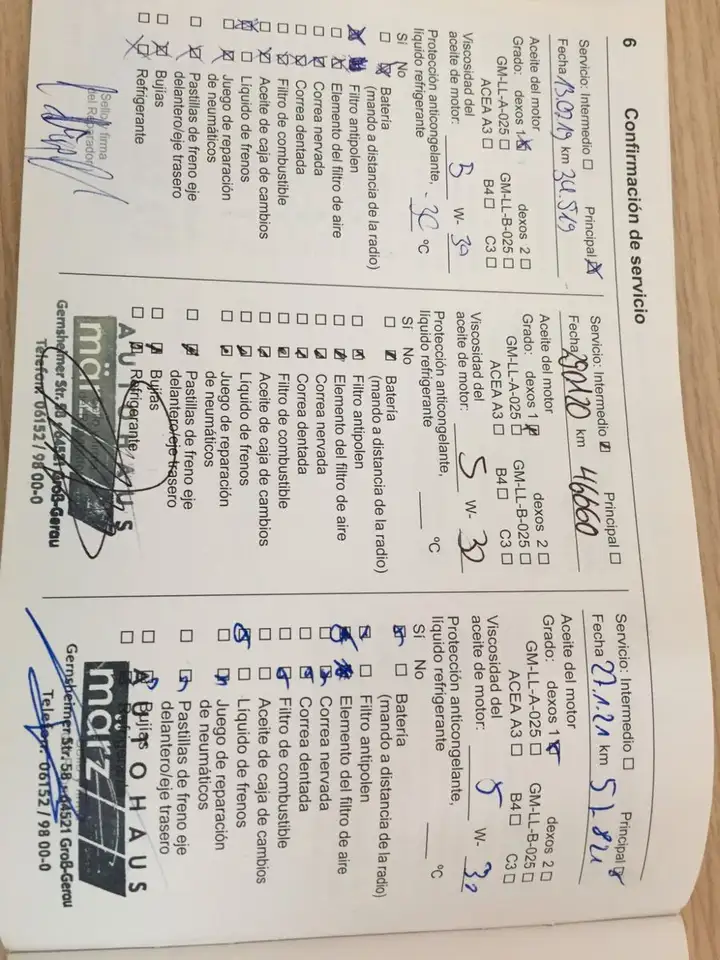 6
Confirmación de servicio
Servicio: Intermedio ☐ Principal ☒
Fecha 13.02.19 km 34.519
Aceite del motor
Grado: dexos 1 ☒ dexos 2 ☐
GM-LL-A-025 ☐ GM-LL-B-025 ☐
ACEA A3 ☐ B4 ☐ C3 ☐
Viscosidad del
aceite de motor: 5 W- 30
Protección anticongelante,
líquido refrigerante -30 °C
Sí No
☐ ☒ Batería
(mando a distancia de la radio)
Filtro antipolen
Elemento del filtro de aire
Correa nervada
Correa dentada
Filtro de combustible
Aceite de caja de cambios
Líquido de frenos
Juego de reparación
de neumáticos
Pastillas de freno eje
delantero/eje trasero
Bujías
Refrigerante
Sello y firma
del Reparador
Servicio: Intermedio ☒ Principal ☐
Fecha km 46660
Aceite del motor
Grado: dexos 1 ☒ dexos 2 ☐
GM-LL-A-025 ☐ GM-LL-B-025 ☐
ACEA A3 ☐ B4 ☐ C3 ☐
Viscosidad del
aceite de motor: 5 W- 30
Protección anticongelante,
líquido refrigerante °C
Sí No
☐ ☒ Batería
(mando a distancia de la radio)
Filtro antipolen
Elemento del filtro de aire
Correa nervada
Correa dentada
Filtro de combustible
Aceite de caja de cambios
Líquido de frenos
Juego de reparación
de neumáticos
Pastillas de freno eje
delantero/eje trasero
Bujías
Refrigerante
AUTOHAUS
märz
Gernsheimer Str. 58 · 64521 Groß-Gerau
Telefon: 06152 / 98 00-0
Servicio: Intermedio ☐ Principal ☒
Fecha 27.1.21 km
Aceite del motor
Grado: dexos 1 ☒ dexos 2 ☐
GM-LL-A-025 ☐ GM-LL-B-025 ☐
ACEA A3 ☐ B4 ☐ C3 ☐
Viscosidad del
aceite de motor: 5 W- 30
Protección anticongelante,
líquido refrigerante °C
Sí No
☒ ☐ Batería
(mando a distancia de la radio)
Filtro antipolen
Elemento del filtro de aire
Correa nervada
Correa dentada
Filtro de combustible
Aceite de caja de cambios
Líquido de frenos
Juego de reparación
de neumáticos
Pastillas de freno eje
delantero/eje trasero
Bujías
AUTOHAUS
märz
Gernsheimer Str. 58 · 64521 Groß-Gerau
Telefon: 06152 / 98 00-0